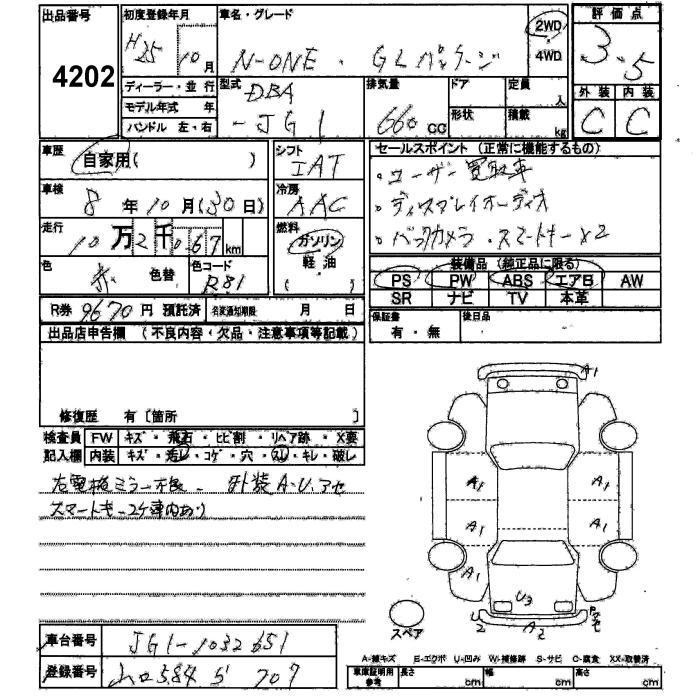 出品番号 4202
初度登録年月 H25年 10月
車名・グレード N-ONE・GLパッケージ
2WD
4WD
評価点 3.5
外装 内装
C C
ディーラー・並行
モデル年式 年
ハンドル 左・右
型式 DBA
-JG1
排気量 660cc
ドア
形状
定員 人
積載 kg
車歴 自家用( )
シフト IAT
車検 8年10月(30日)
冷房 AAC
走行 10万2千067km
燃料 ガソリン
軽油
色 赤 色替
色コード R81
セールスポイント(正常に機能するもの)
・ユーザー買取車
・ディスプレイオーディオ
・バックカメラ・スマートキーx2
装備品(純正品に限る)
PS PW ABS エアB AW
SR ナビ TV 本革
R券 9670円 預託済 名変通知期限 月 日
保証書 有・無
後日品
出品店申告欄(不良内容・欠品・注意事項等記載)
修復歴 有[箇所 ]
検査員 FW キズ・飛石・ヒビ割・リペア跡・X要
記入欄 内装 キズ・汚レ・コゲ・穴・スレ・キレ・破レ
右電格ミラー不良 - 外装A・U、アセ
スマートキー2ケ車内あり
A1
A1 A1
A1 A1
A1
U3
U2 A2 アセ
スペア
車台番号 JG1-1032651
登録番号 山口584 ら 707
A-線キズ E-エクボ U-凹み W-補修跡 S-サビ C-腐食 XX-取替済
車庫証明用参考 長さ cm 幅 cm 高さ cm